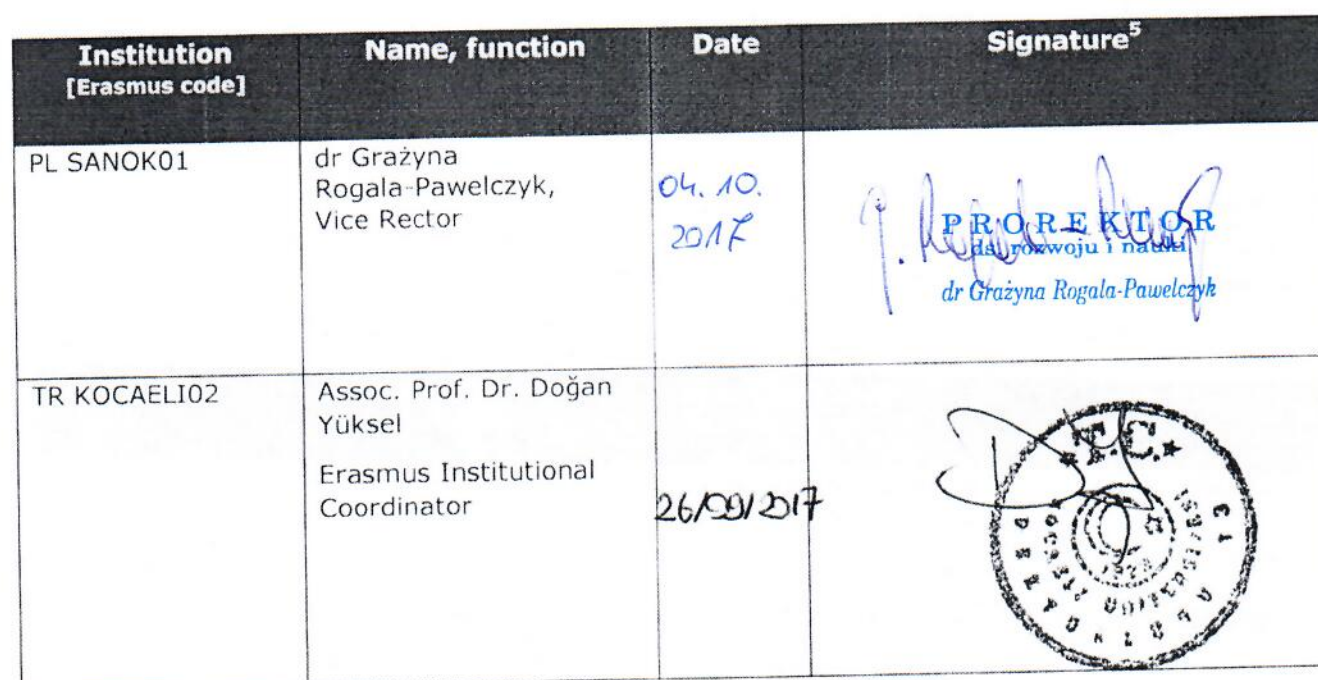 Institution
[Erasmus code]
Name, function
Date
Signature⁵
PL SANOK01
dr Grażyna
Rogala-Pawelczyk,
Vice Rector
04. 10.
2017
PROREKTOR
ds. rozwoju i nauki
dr Grażyna Rogala-Pawelczyk
TR KOCAELI02
Assoc. Prof. Dr. Doğan
Yüksel
Erasmus Institutional
Coordinator
26/09/2017
T.C.